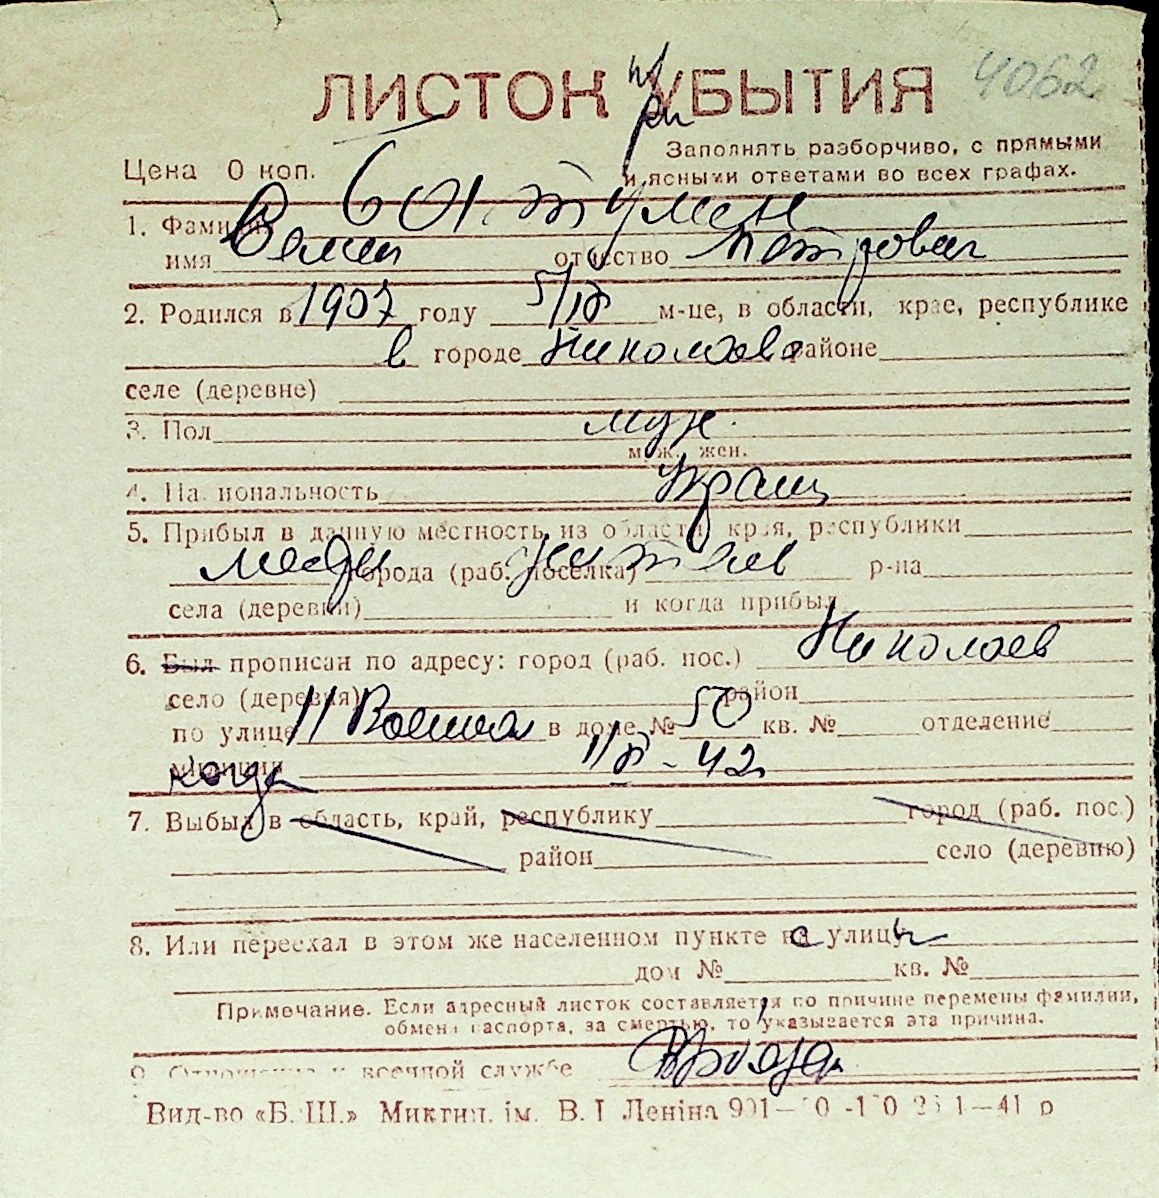 ЛИСТОК УБЫТИЯ при 4062
Цена 0 коп. Заполнять разборчиво, с прямыми
и ясными ответами во всех графах.
1. Фамилия
имя отчество Петрович
2. Родился в 1907 году м-це, в области, крае, республике
в городе Николаеве районе
селе (деревне)
3. Пол муж.
муж. жен.
4. Национальность Украин
5. Прибыл в данную местность из области, края, республики
города (раб. поселка) р-на
села (деревни) и когда прибыл
6. Был прописан по адресу: город (раб. пос.) Николаев
село (деревня) район
по улице 11 Военная в доме № 50 кв. № отделение
милиции когда - 42
7. Выбыл в область, край, республику город (раб. пос.)
район село (деревню)
8. Или переехал в этом же населенном пункте на с улицы
дом № кв. №
Примечание. Если адресный листок составляется по причине перемены фамилии,
обмена паспорта, за смертью, то указывается эта причина.
9. Отношение к военной службе
Вид-во «Б. Ш.» Миктип. ім. В. І Леніна